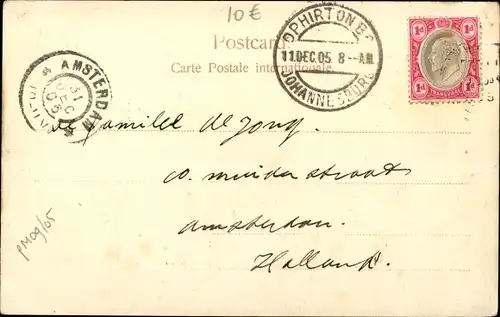 10€
Postcard
Carte Postale internationale
OPHIRTON B.O
11 DEC. 05 8-AM
JOHANNESBURG
1d 1d
TRANSVAAL
1d 1d
AMSTERDAM
31
DEC
05
de familie de Jong.
60. muiderstraat
amsterdam.
Holland.
PM09/05